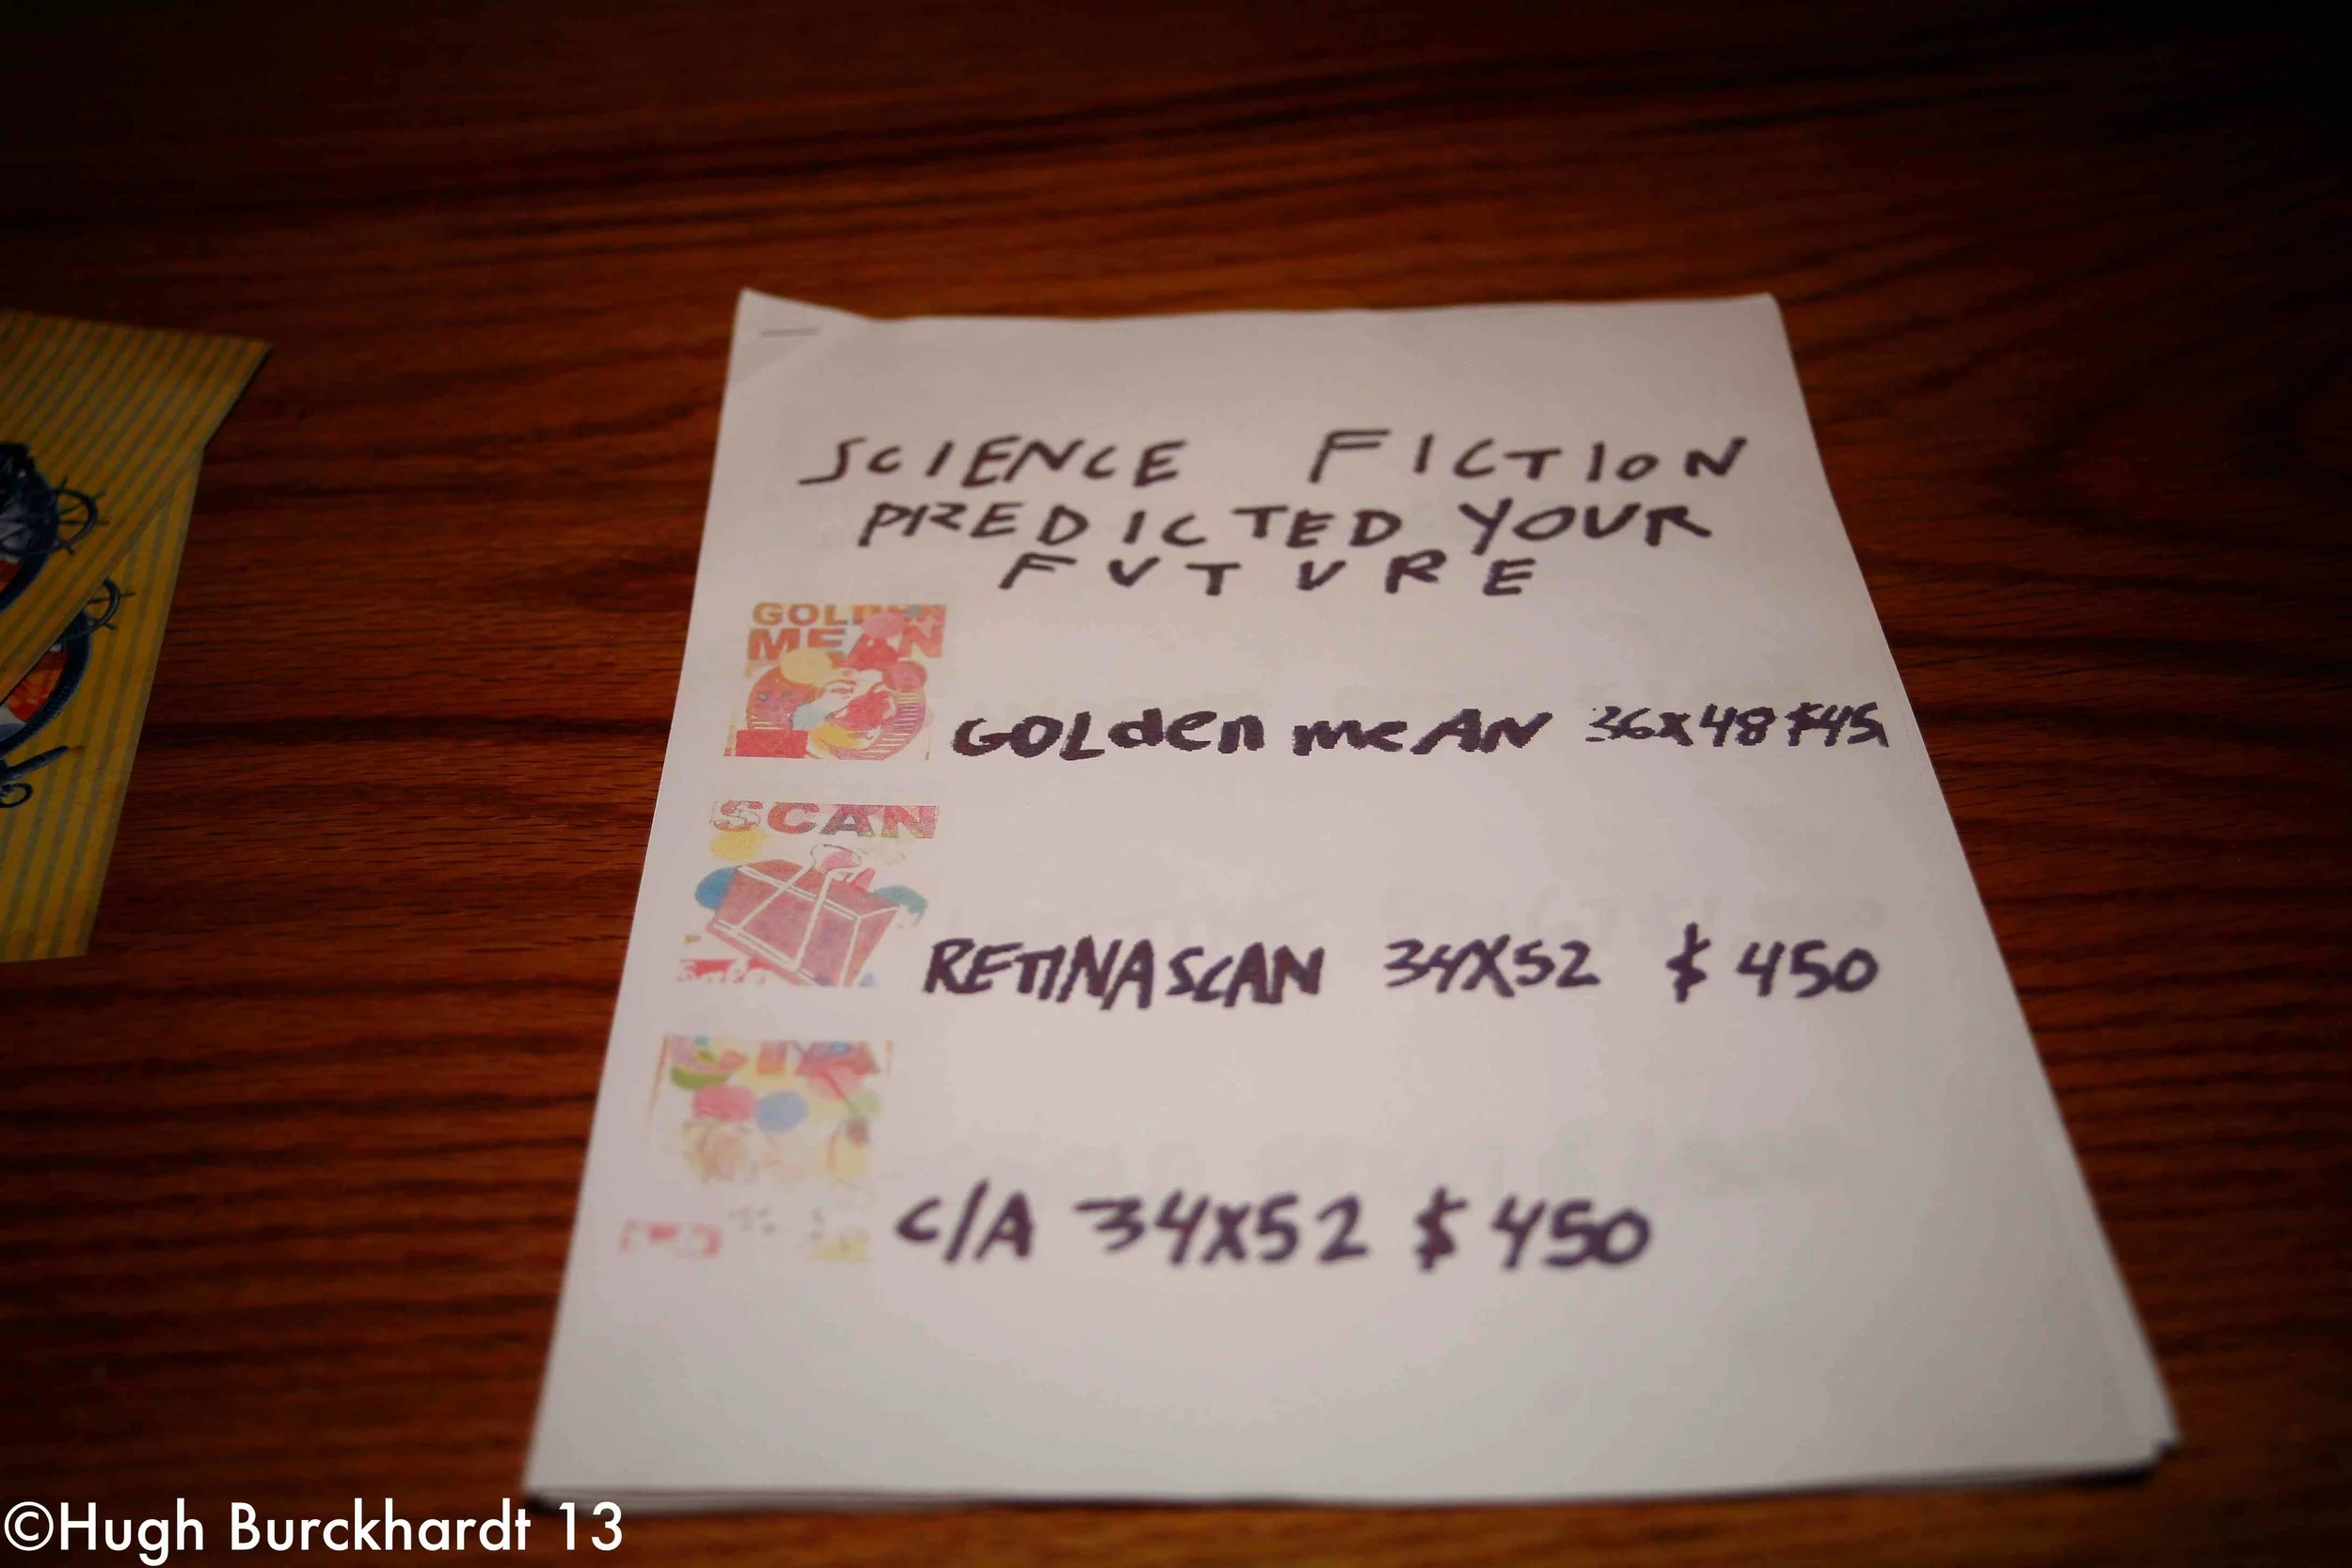 SCIENCE FICTION
PREDICTED YOUR
FUTURE
GOLDEN
MEAN
GOLden meAN 36x48 $45
SCAN
RETINA SCAN 34X52 $450
C/A 34x52 $450
©Hugh Burckhardt 13